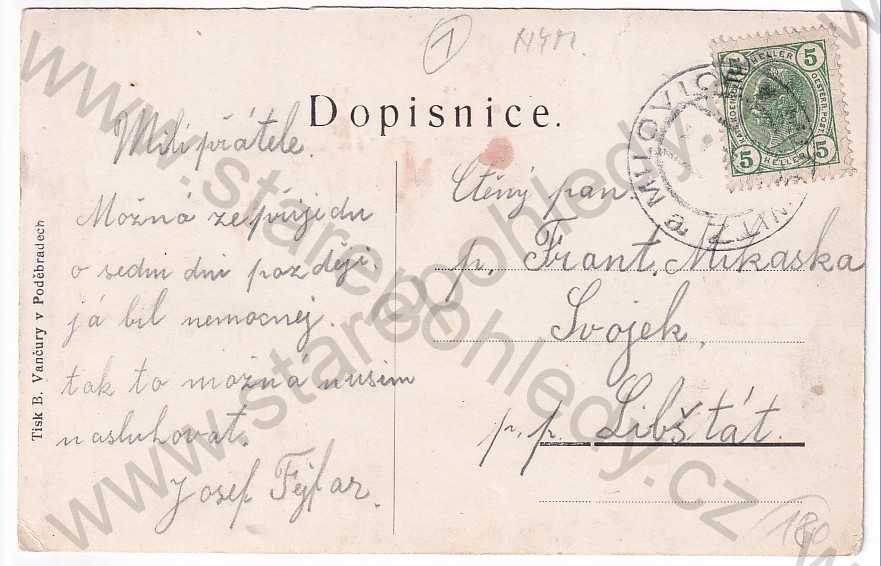 1
Dopisnice.
Milí přátele.
Možná ze přijedu
o sedm dní pozdějí.
já bil nemocnej.
tak to možná musim
nasluhovat.
Josef Fejfar.
Ctěný pan.
p. Frant. Mikaska
Svojek,
p. p. Libštát.
Tisk B. Vančury v Poděbradech
5 HELLER 5
5 HELLER 5
MILOVIC
180
www.starepohledy.cz
www.starepohledy.cz